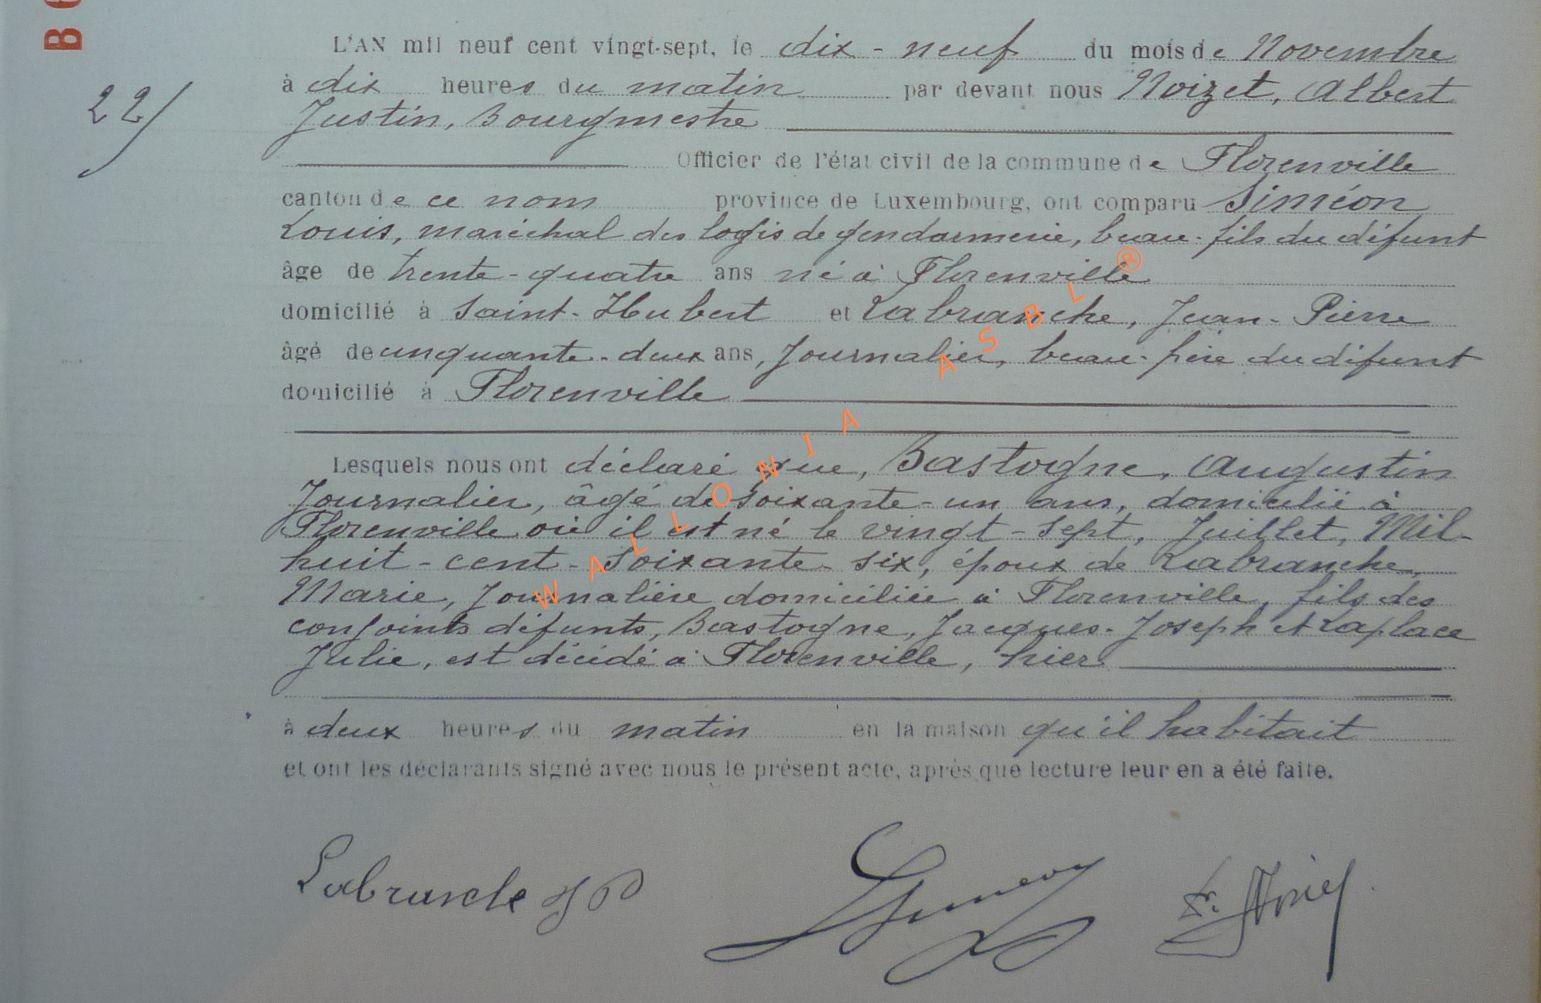 L'AN mil neuf cent vingt-sept, le dix-neuf du mois de Novembre
22/
à dix heures du matin par devant nous Noizet, Albert
Justin, Bourgmestre
Officier de l'état civil de la commune de Florenville
canton de ce nom province de Luxembourg, ont comparu Siméon
Louis, maréchal des logis de gendarmerie, beau-fils du défunt
âge de trente-quatre ans né à Florenville
domicilié à Saint-Hubert et Labranche, Jean-Pierre
âgé de cinquante-deux ans, Journalier, beau-frère du défunt
domicilié à Florenville
Lesquels nous ont déclaré que, Bastogne, Augustin
Journalier, âgé de soixante-un ans, domicilié à
Florenville où il est né le vingt-sept, Juillet, Mil-
huit-cent-soixante-six, époux de Labranche,
Marie, Journalière domiciliée à Florenville, fils des
conjoints défunts, Bastogne, Jacques-Joseph et Laplace
Julie, est décédé à Florenville, hier
à deux heures du matin en la maison qu'il habitait
et ont les déclarants signé avec nous le présent acte, après que lecture leur en a été faite.
Labranche J P
WALLONIA ASBL ®